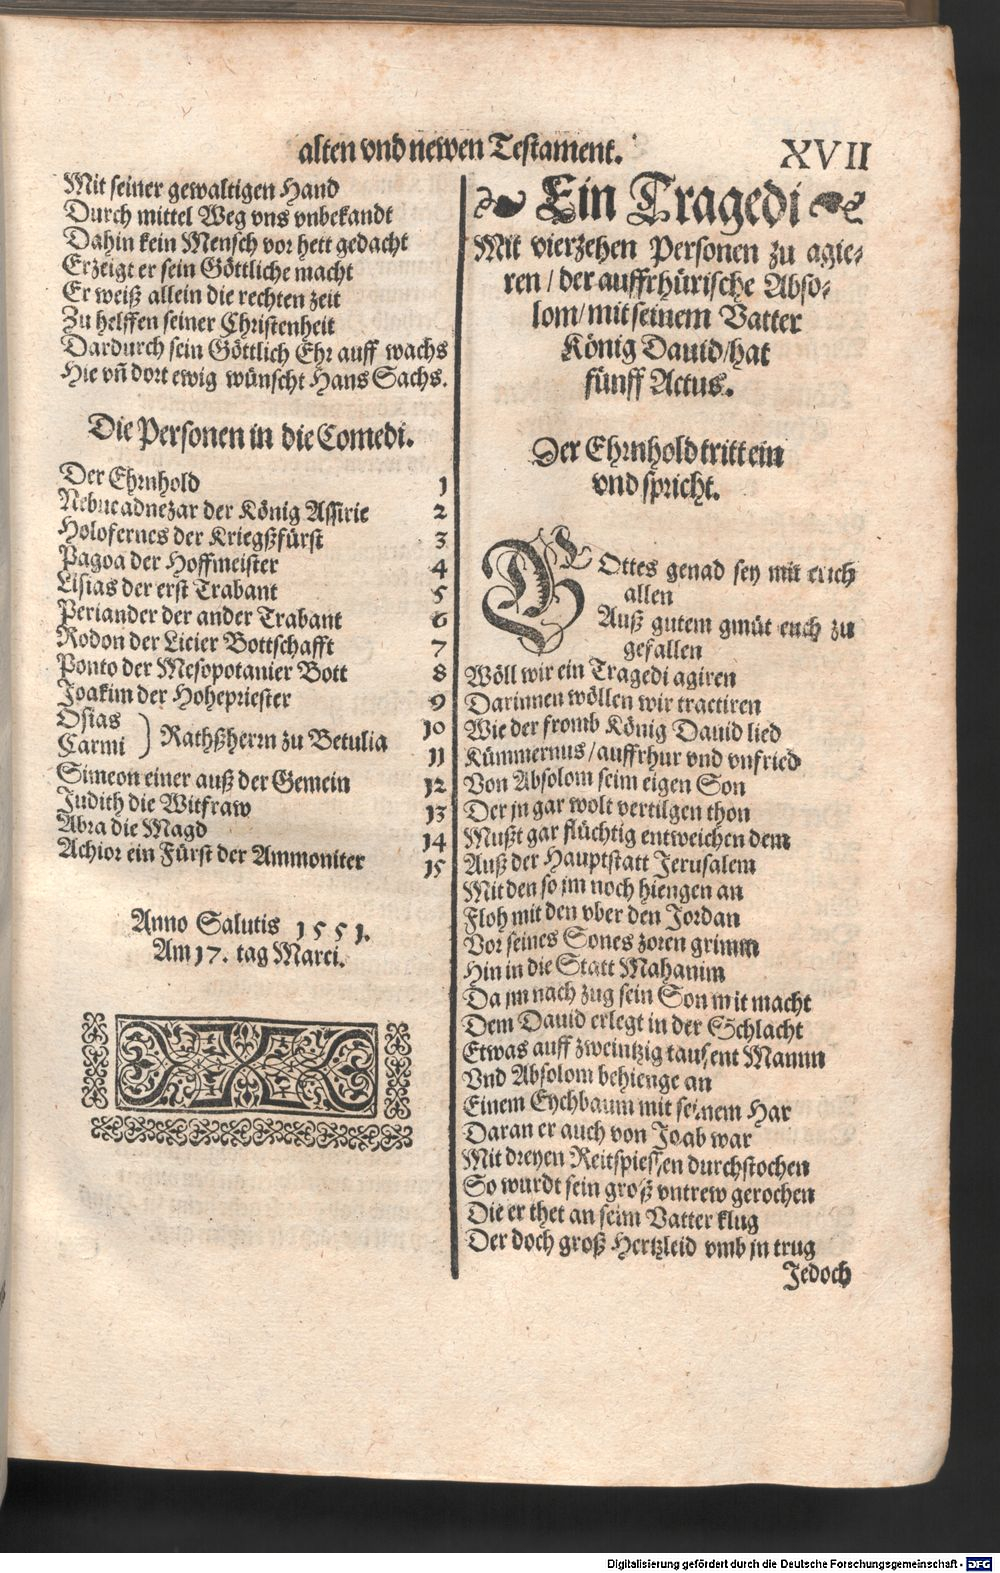 alten vnd newen Testament.
XVII
Mit seiner gewaltigen Hand
Durch mittel Weg vns vnbekandt
Dahin kein Mensch vor hett gedacht
Erzeigt er sein Göttliche macht
Er weiß allein die rechten zeit
Zu helffen seiner Christenheit
Dardurch sein Göttlich Ehr auff wachs
Hie vñ dort ewig wünscht Hans Sachs.
Die Personen in die Comedi.
Der Ehrnhold 1
Nebucadnezar der König Assirie 2
Holofernes der Kriegßfürst 3
Pagoa der Hoffmeister 4
Lisias der erst Trabant 5
Periander der ander Trabant 6
Rodon der Licier Bottschafft 7
Ponto der Mesopotanier Bott 8
Joakim der Hohepriester 9
Osias 10
Carmi ) Rathßherrn zu Betulia 11
Simeon einer auß der Gemein 12
Judith die Witfraw 13
Abra die Magd 14
Achior ein Fürst der Ammoniter 15
Anno Salutis 1551.
Am 17. tag Marci.
Ein Tragedi
Mit vierzehen Personen zu agie-
ren / der auffrhürische Abso-
lom / mit seinem Vatter
König Dauid / hat
fünff Actus.
Der Ehrnhold tritt ein
vnd spricht.
GOttes genad sey mit euch
allen
Auß gutem gmüt euch zu
gefallen
Wöll wir ein Tragedi agiren
Darinnen wöllen wir tractiren
Wie der fromb König Dauid lied
Kümmernus / auffrhur vnd vnfried
Von Absolom seim eigen Son
Der jn gar wolt vertilgen thon
Mußt gar flüchtig entweichen dem
Auß der Hauptstatt Jerusalem
Mit den so jm noch hiengen an
Floh mit den vber den Jordan
Vor seines Sones zoren grimm
Hin in die Statt Mahanim
Da jm nach zug sein Son mit macht
Dem Dauid erlegt in der Schlacht
Etwas auff zweintzig tausent Mann
Vnd Absolom behienge an
Einem Eychbaum mit seinem Har
Daran er auch von Joab war
Mit dreyen Reitspiessen durchstochen
So wurdt sein groß vntrew gerochen
Die er thet an seim Vatter klug
Der doch groß Hertzleid vmb jn trug
Jedoch
Digitalisierung gefördert durch die Deutsche Forschungsgemeinschaft - DFG